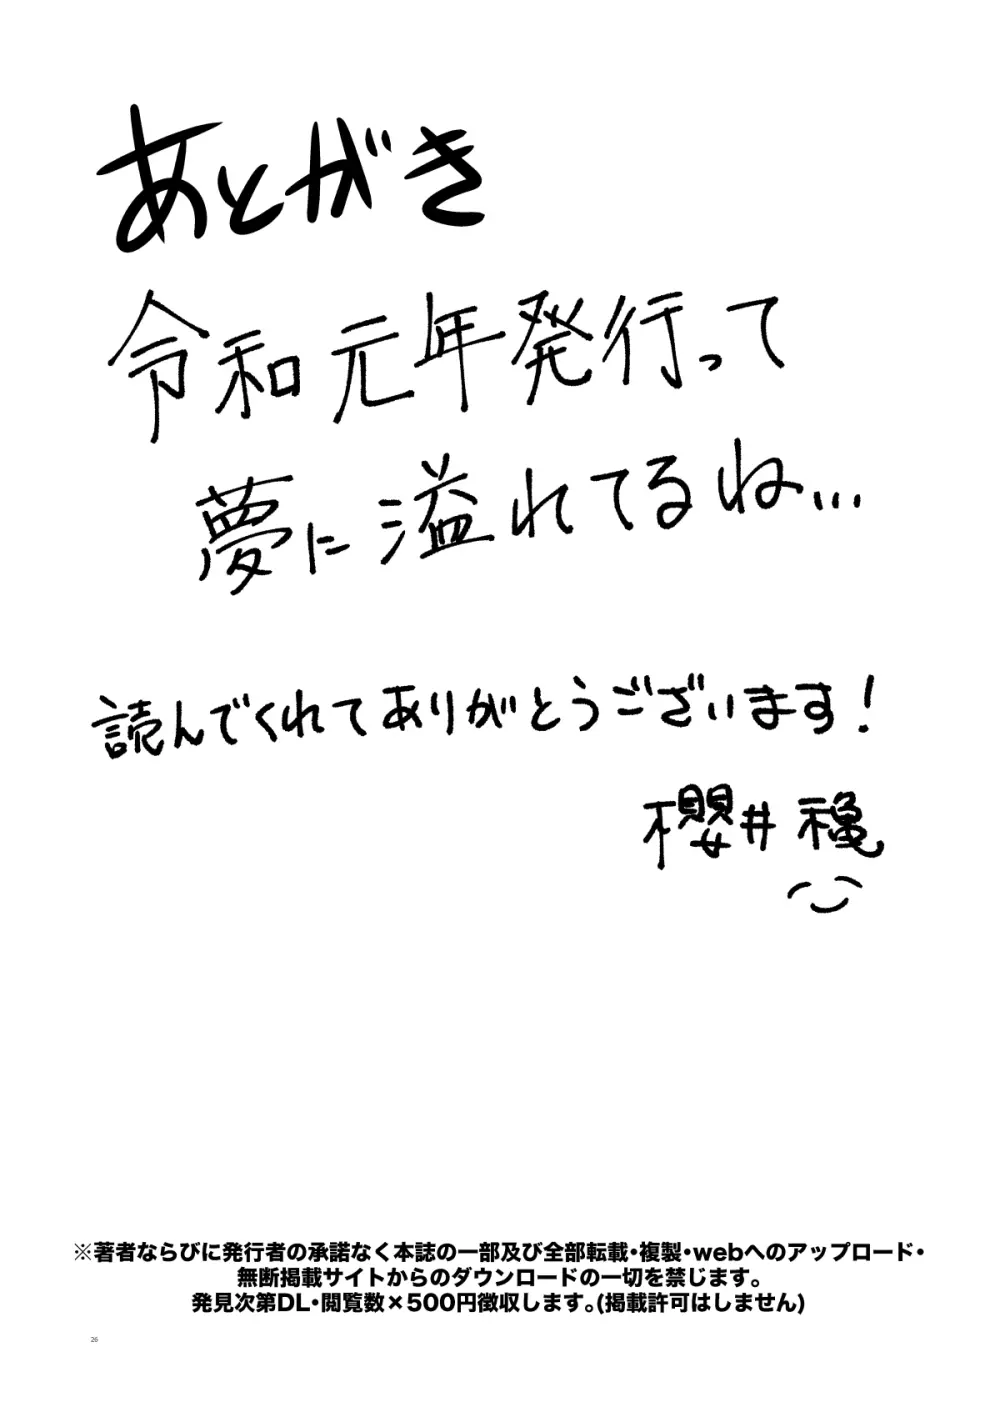 あとがき
令和元年発行って
夢に溢れてるね…
読んでくれてありがとうございます！
櫻井 穐
※著者ならびに発行者の承諾なく本誌の一部及び全部転載・複製・webへのアップロード・
無断掲載サイトからのダウンロードの一切を禁じます。
発見次第DL・閲覧数×500円徴収します。(掲載許可はしません)
26